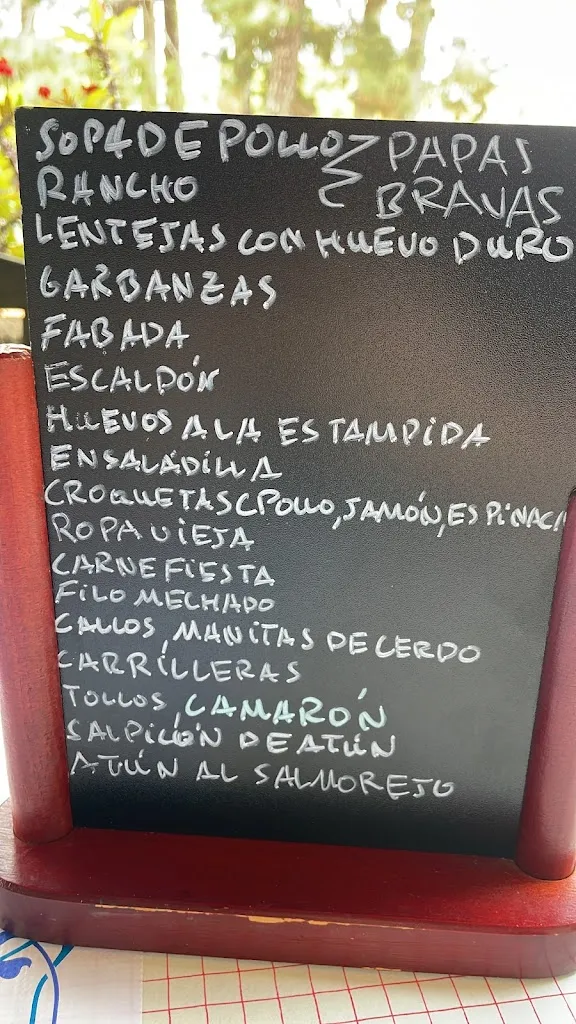 SOPA DE POLLO
PAPAS BRAVAS
RANCHO
LENTEJAS CON HUEVO DURO
GARBANZAS
FABADA
ESCALDÓN
HUEVOS A LA ESTAMPIDA
ENSALADILLA
CROQUETAS (POLLO, JAMÓN, ESPINAC
ROPA VIEJA
CARNE FIESTA
FILO MECHADO
CALLOS, MANITAS DE CERDO
CARRILLERAS
TOLLOS, CAMARÓN
SALPICÓN DE ATÚN
ATÚN AL SALMOREJO